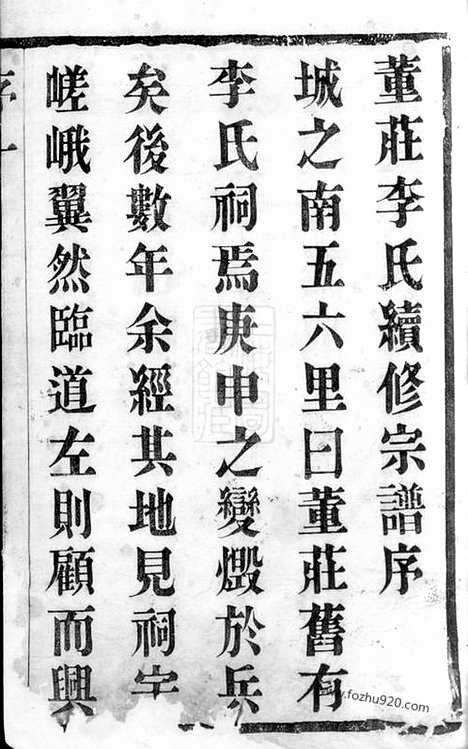 董莊李氏續修宗譜序
城之南五六里曰董莊舊有
李氏祠焉庚申之變燬於兵
矣後數年余經其地見祠宇
嵯峨翼然臨道左則顧而興
序 一
www.fozhu920.com